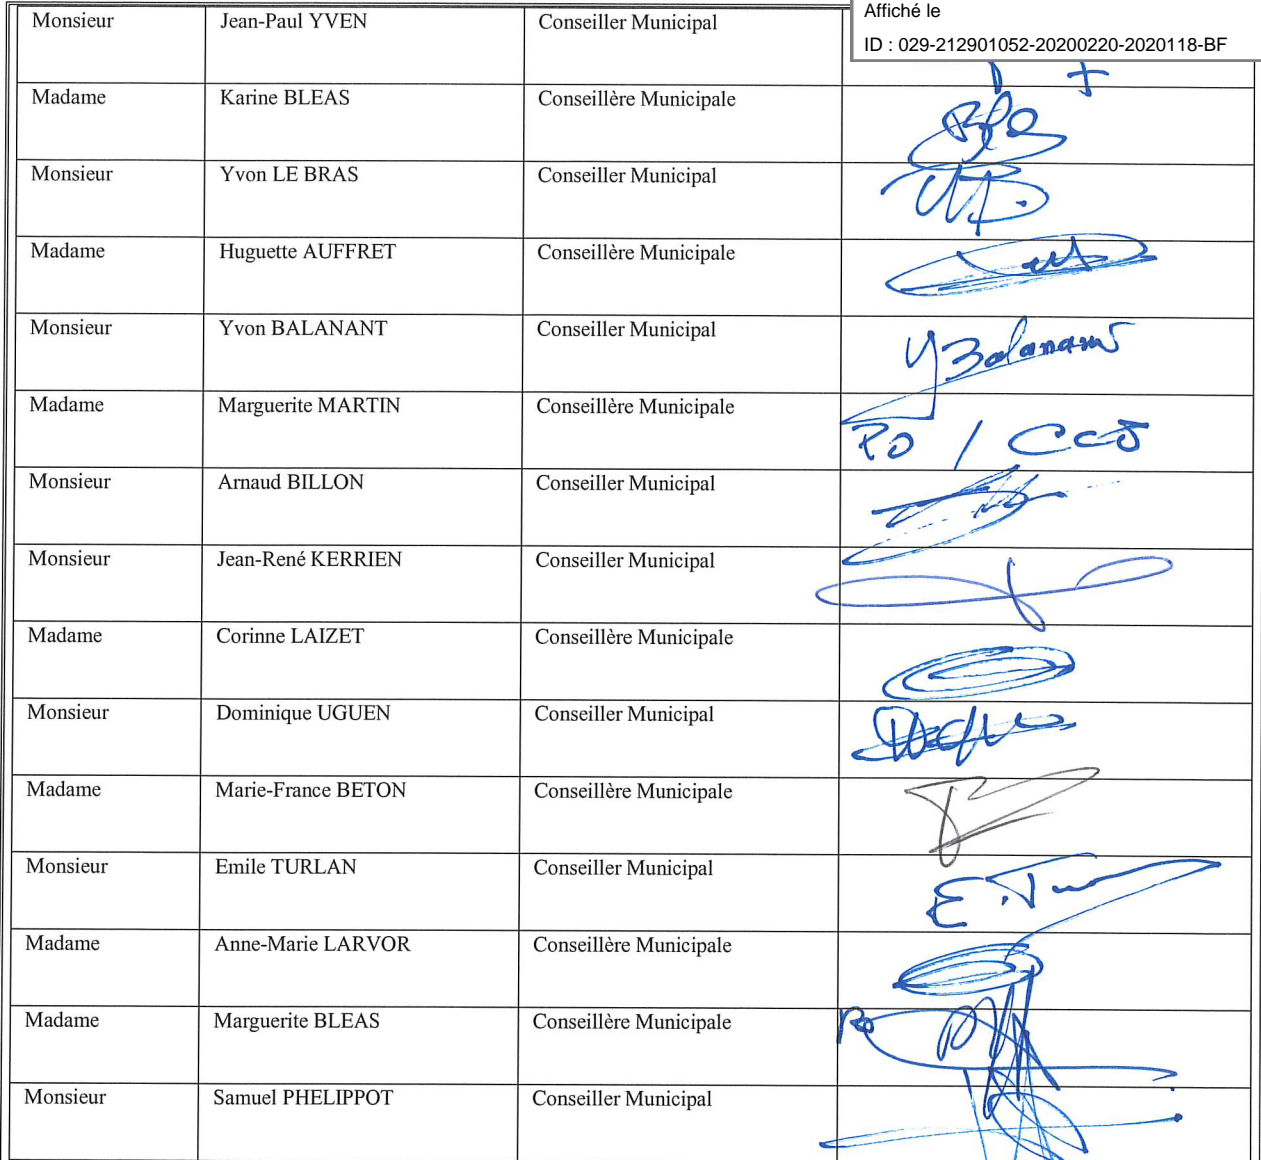 Affiché le
ID : 029-212901052-20200220-2020118-BF
Monsieur Jean-Paul YVEN Conseiller Municipal
Madame Karine BLEAS Conseillère Municipale
Monsieur Yvon LE BRAS Conseiller Municipal
Madame Huguette AUFFRET Conseillère Municipale
Monsieur Yvon BALANANT Conseiller Municipal Y Balanant
Madame Marguerite MARTIN Conseillère Municipale PO /
Monsieur Arnaud BILLON Conseiller Municipal
Monsieur Jean-René KERRIEN Conseiller Municipal
Madame Corinne LAIZET Conseillère Municipale
Monsieur Dominique UGUEN Conseiller Municipal
Madame Marie-France BETON Conseillère Municipale
Monsieur Emile TURLAN Conseiller Municipal
Madame Anne-Marie LARVOR Conseillère Municipale
Madame Marguerite BLEAS Conseillère Municipale Po
Monsieur Samuel PHELIPPOT Conseiller Municipal